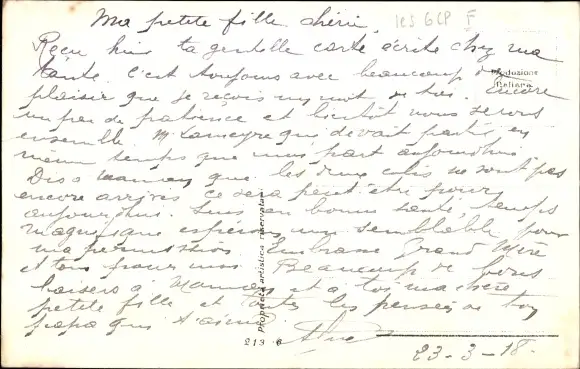 Ma petite fille chérie,
Reçu hier ta gentille carte écrite chez ma
tante. C'est toujours avec beaucoup de
plaisir que je reçois un mot de toi. Encore
un peu de patience et bientôt nous serons
ensemble. M. qui devait partir en
même temps que nous part aujourd'hui
Dis à maman que les deux colis ne sont pas
encore arrivés ce sera peut être pour
aujourd'hui. Suis en bonne santé, temps
magnifique espérons un semblable pour
ma permission. Embrasse Grand Mère
et ton pour moi. Beaucoup de bons
baisers à Maman et à toi ma chère
petite fille et toutes les pensées de ton
papa qui t'aime.
23-3-18.
Produzione
Italiana
Proprietà artistica riservata
213